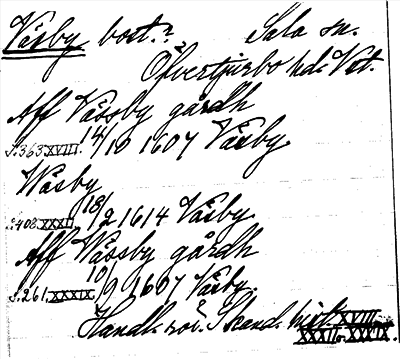 Väsby bost.? Sala sn.
Öfvertjurbo hd. Vst.
Aff Vässby gårdh
S. 363 XVIII. 14/10 1607 Väsby
Wäsby
S. 403 XXXII. 18/2 1614 Väsby
Aff Vässby gårdh
S. 261. XXXIX. 10/9 1607 Väsby.
Handl. rör. Skand. hist. XVIII.
XXXII. XXXIX.